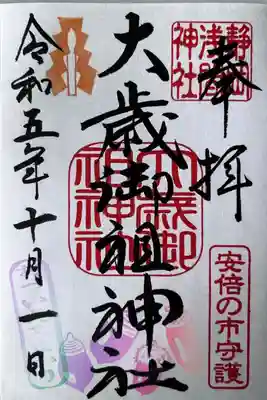 奉拝
静岡
浅間
神社
大歳御祖神社
大歳御
祖神社
安倍の市守護
令和五年十月一日